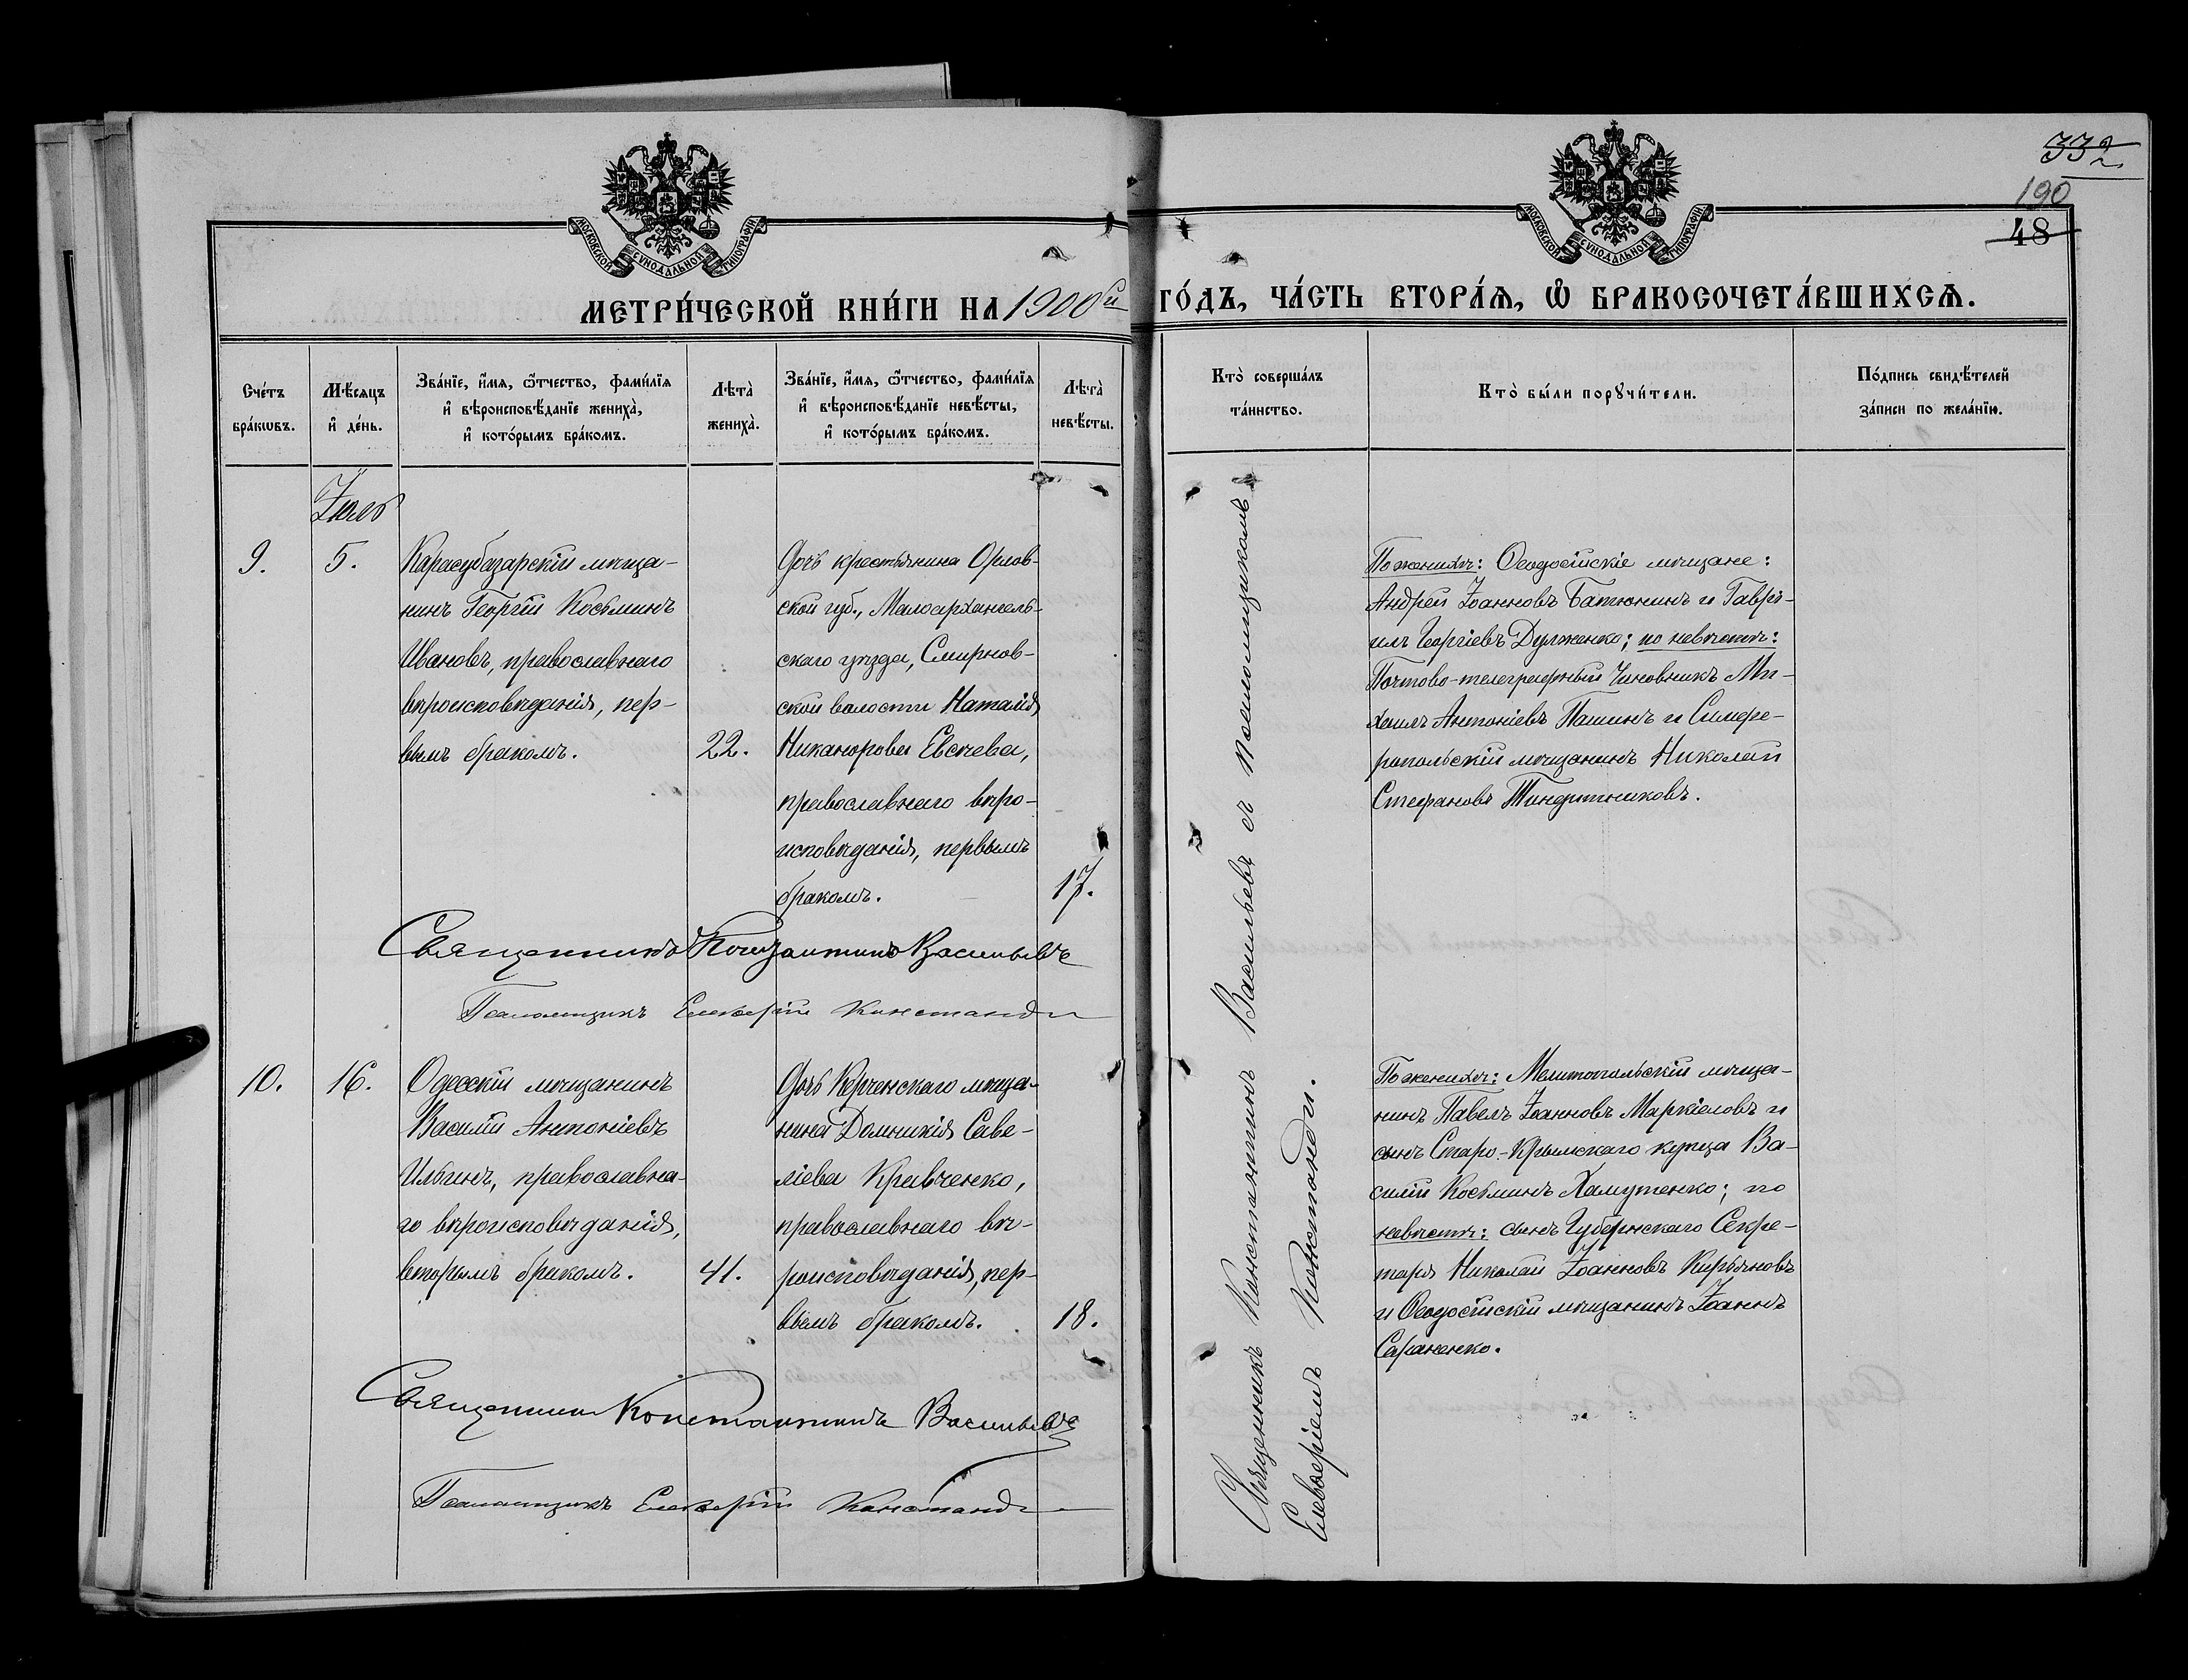 332
190
48
МОСКОВСКОЙ СѴНОДАЛЬНОЙ ТИПОГРАФІИ
МОСКОВСКОЙ СѴНОДАЛЬНОЙ ТИПОГРАФІИ
МЕТРИ́ЧЕСКОЙ КНИ́ГИ НА 1900й ГО́ДЪ, ЧА́СТЬ ВТОРА́Ѧ, Ѽ БРАКОСОЧЕТА́ВШИХСѦ.
Сче́тъ
бра́кѡвъ.
Мѣ́сяцъ
и҆ де́нь.
Зва́нїе, и҆́мѧ, ѻ҆́тчество, фами́лїѧ
и҆ вѣроисповѣ́данїе жениха̀,
и҆ кото́рымъ бра́комъ.
Лѣта̀
жениха̀.
Зва́нїе, и҆́мѧ, ѻ҆́тчество, фами́лїѧ
и҆ вѣроисповѣ́данїе невѣ́сты,
и҆ кото́рымъ бра́комъ.
Лѣта̀
невѣ́сты.
Кто̀ соверша́лъ
та́инство.
Кто̀ бы́ли порꙋчи́тели.
По́дпись свидѣ́телей
за́писи по жела́нїю.
Іюль
9.
5.
Карасубазарскій мѣща-
нинъ Георгій Косьминъ
Ивановъ, православнаго
вѣроисповѣданія, пер-
вымъ бракомъ.
22.
Дочь крестьянина Орлов-
ской губ., Малоархангель-
скаго уѣзда, Смирнов-
ской волости Наталія
Никанорова Евсѣева,
православнаго вѣро-
исповѣданія, первымъ
бракомъ.
17.
По женихѣ: Ѳеодосійскіе мѣщане:
Андрей Іоанновъ Батюнинъ и Гаврі-
илъ Георгіевъ Дулженко; по невѣстѣ:
Почтово-телеграфный Чиновникъ Ми-
хаилъ Антоніевъ Пашинъ и Симфе-
ропольскій мѣщанинъ Николай
Стефановъ
Священникъ Константинъ Васильевъ
Псаломщикъ Елевѳерій Константи
10.
16.
Одесскій мѣщанинъ
Василій Антоніевъ
Ильинъ, православна-
го вѣроисповѣданія,
вторымъ бракомъ.
41.
Дочь Керченскаго мѣща-
нина Домникія Саве-
ліева Кравченко,
православнаго вѣ-
роисповѣданія, пер-
вымъ бракомъ.
18.
По женихѣ: Мелитопольскій мѣща-
нинъ Павелъ Іоанновъ Маркіеловъ и
сынъ Старо-Крымскаго купца Ва-
силій Косьминъ Хамутенко; по
невѣстѣ: сынъ Губернскаго Секре-
таря Николай Іоанновъ Кирьяновъ
и Ѳеодосійскій мѣщанинъ Іоаннъ
Сараненко.
Священникъ Константинъ Васильевъ
Псаломщикъ Елевѳерій Константи
Священникъ Константинъ Васильевъ съ псаломщикомъ
Елевѳеріемъ Константи.